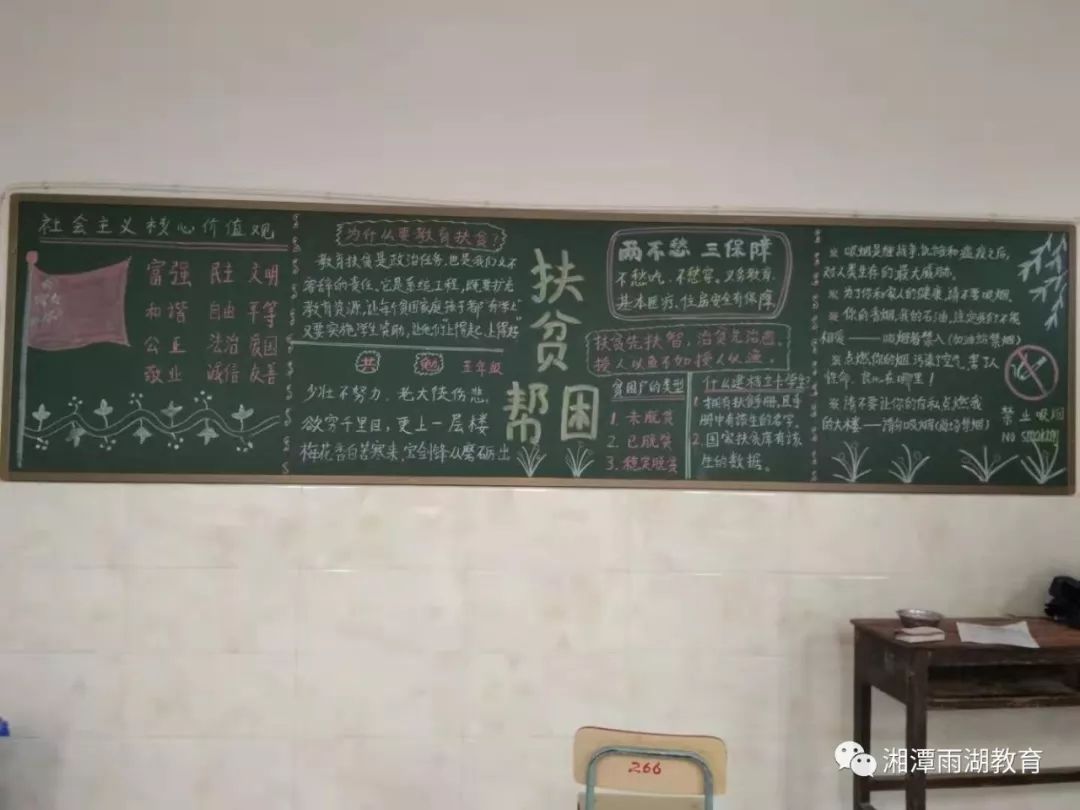 社会主义核心价值观
富强 民主 文明
和谐 自由 平等
公正 法治 爱国
敬业 诚信 友善
为什么要教育扶贫?
教育扶贫是政治任务,也是我们义不
容辞的责任,它是系统工程,既要扩充
教育资源,让每个贫困家庭孩子都"有学上"
又要实施学生资助,让他们"上得起""上得好"
共勉 五年级
少壮不努力,老大徒伤悲,
欲穷千里目,更上一层楼
梅花香自苦寒来,宝剑锋从磨砺出
扶贫
帮困
两不愁 三保障
不愁吃、不愁穿。义务教育,
基本医疗,住房安全有保障
扶贫先扶智,治贫先治愚,
授人以鱼不如授人以渔。
贫困户的类型
1. 未脱贫
2. 已脱贫
3. 稳定脱贫
什么建档立卡学生?
1. 拥有扶贫手册,且手
册中有该生的名字。
2. 国家扶贫库有该
生的数据。
※ 吸烟是继战争、饥饿和瘟疫之后,
对人类生存的最大威胁。
※ 为了你和家人的健康,请不要吸烟。
※ 你的香烟,我的石油,注定我们不能
相爱——吸烟者禁入(加油站禁烟)
※ 点燃你的烟,污染了空气,害了人
性命,良心在哪里!
※ 请不要让你的自私点燃我
的大楼——请勿吸烟
禁止吸烟
NO SMOKING
266
湘潭雨湖教育